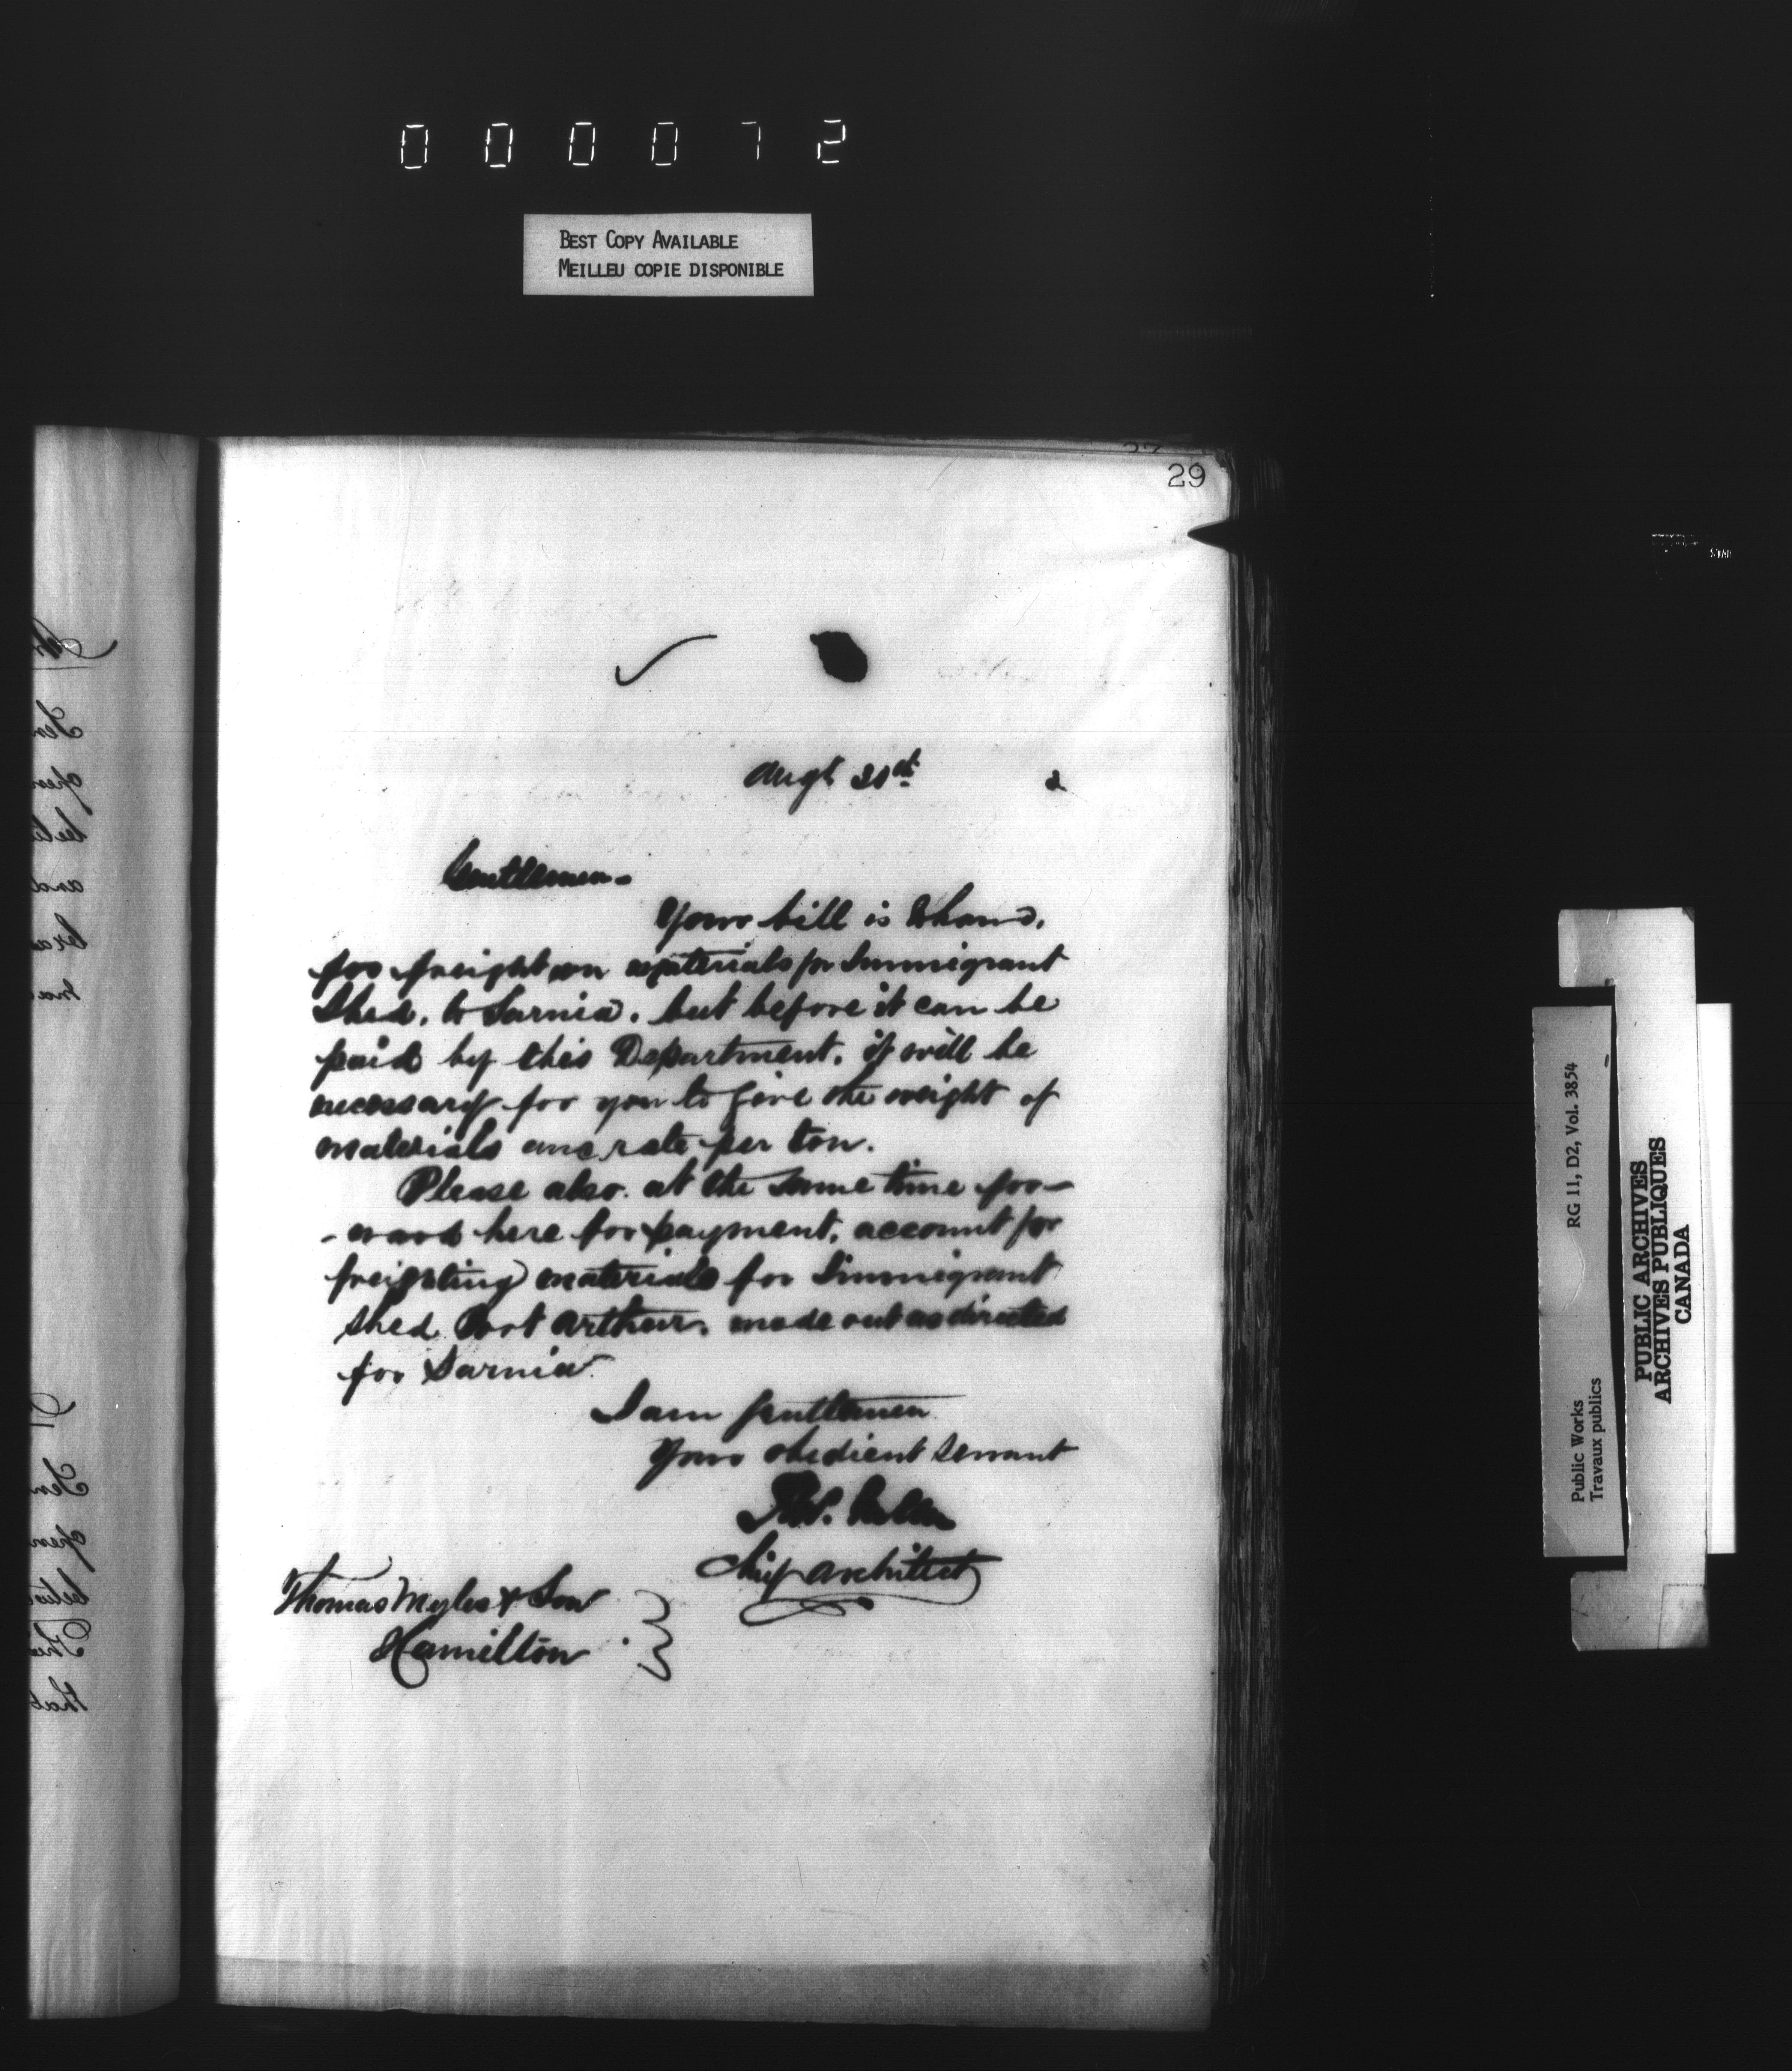 000072
BEST COPY AVAILABLE
MEILLEU COPIE DISPONIBLE
29
Augt 21st 2
Gentlemen.
Your bill is to hand,
for freight on materials for Immigrant
Shed, to Sarnia, but before it can be
paid by this Department, it will be
necessary for you to give the weight of
materials and rate per ton.
Please also at the same time for-
-ward here for payment, account for
freighting materials for Immigrant
shed Port Arthur, made out as directed
for Sarnia.
I am Gentlemen
Your obedient Servant
Thos. Fuller
Chief Architect
Thomas Myles & Son
Hamilton
Public Works
Travaux publics
RG 11, D2, Vol. 3854
PUBLIC ARCHIVES
ARCHIVES PUBLIQUES
CANADA